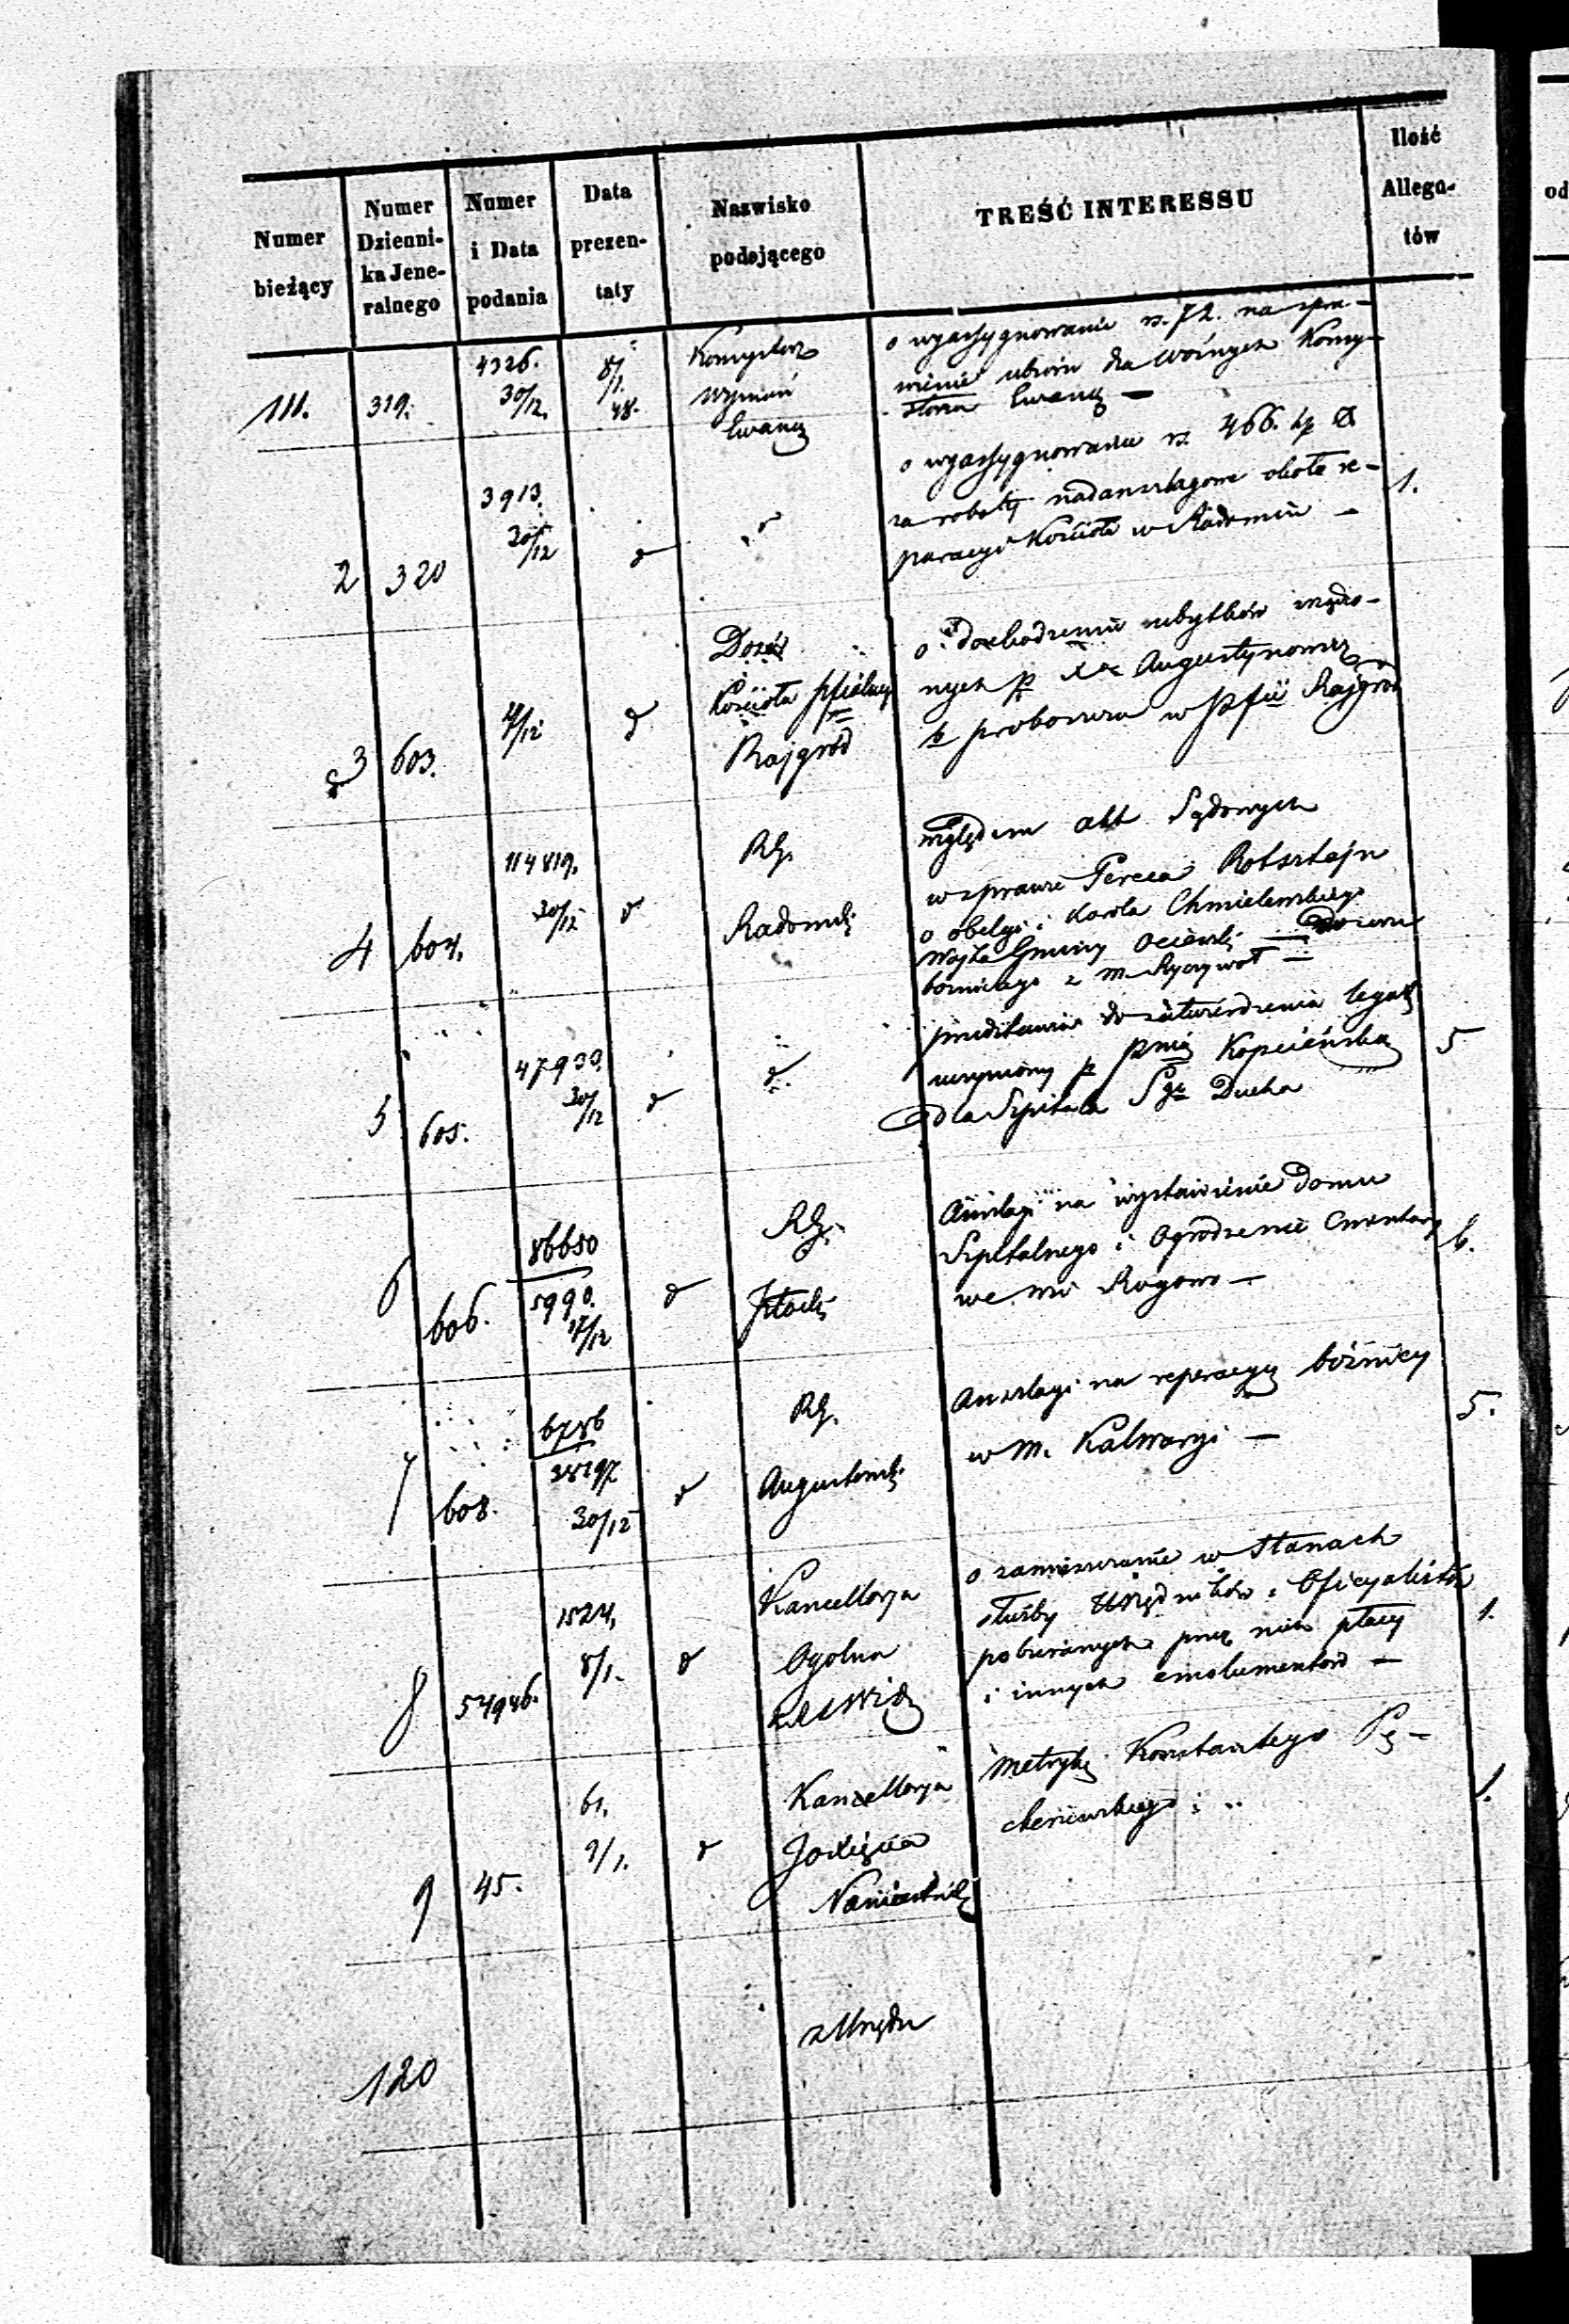 Numer bieżący
Numer Dzienni- ka Jene- ralnego
Numer i Data podania
Data prezen- taty
Nazwisko podającego
TREŚĆ INTERESSU
Ilość Allega- tów
111. 319. 4326. 30/12. 8/1. 48.
Wyznań
Ewang
o wyassygnowanie rs. 72. na spra-
wienie ubioru dla Woźnych Konsy-
storza Ewang —
2 320 3913. 30/12 d d
o wyassygnowanie rs. 466. kp
za roboty nadanszlagowe około re-
paracyi Kościoła w Radomiu — 1.
3 603. /12 d
Dozór
Kościoła
Rajgród
o dochodzenie ubytków
nych p Augustynowicz
b proboszcza w Rajgród
4 604. 114819. 30/12 d
RG.
Radomsk
względem akt Sądowych
w sprawie Perca Rotsztejn
o obelgi i Karola Chmielewskiego
Wójta Gminy Dozoru
bożniczego z m. Ryczywół —
5 605. 47930. 30/12 d d.
przedstawia do zatwierdzenia legat
uczyniony p Kopcińską
dla Szpitala Sgo Ducha 5
6 606. 86650 5990. 17/12 d
RG.
Płock
Anszlagi na wystawienie Domu
Szpitalnego i Ogrodzenie Cmentarz
we wsi Rogowo — 6.
7 608. 6786 38197 30/12 d
RG.
Augustowsk.
Anszlagi na reperacyą bóżnicy
w M. Kalwaryi — 5.
8 54946. 1524. 8/1. d
Kancellarya
Ogolna
o zamieszczanie w Stanach
służby Urzędników i Oficyalistów
pobieranych przez nich płacy
i innych emolumentow — 1.
9 45. 61. 9/1. d
Kancellarya
Namiestnik
Metrykę Konstantego Pę-
cherzewskiego 1.
120
z Urzędu